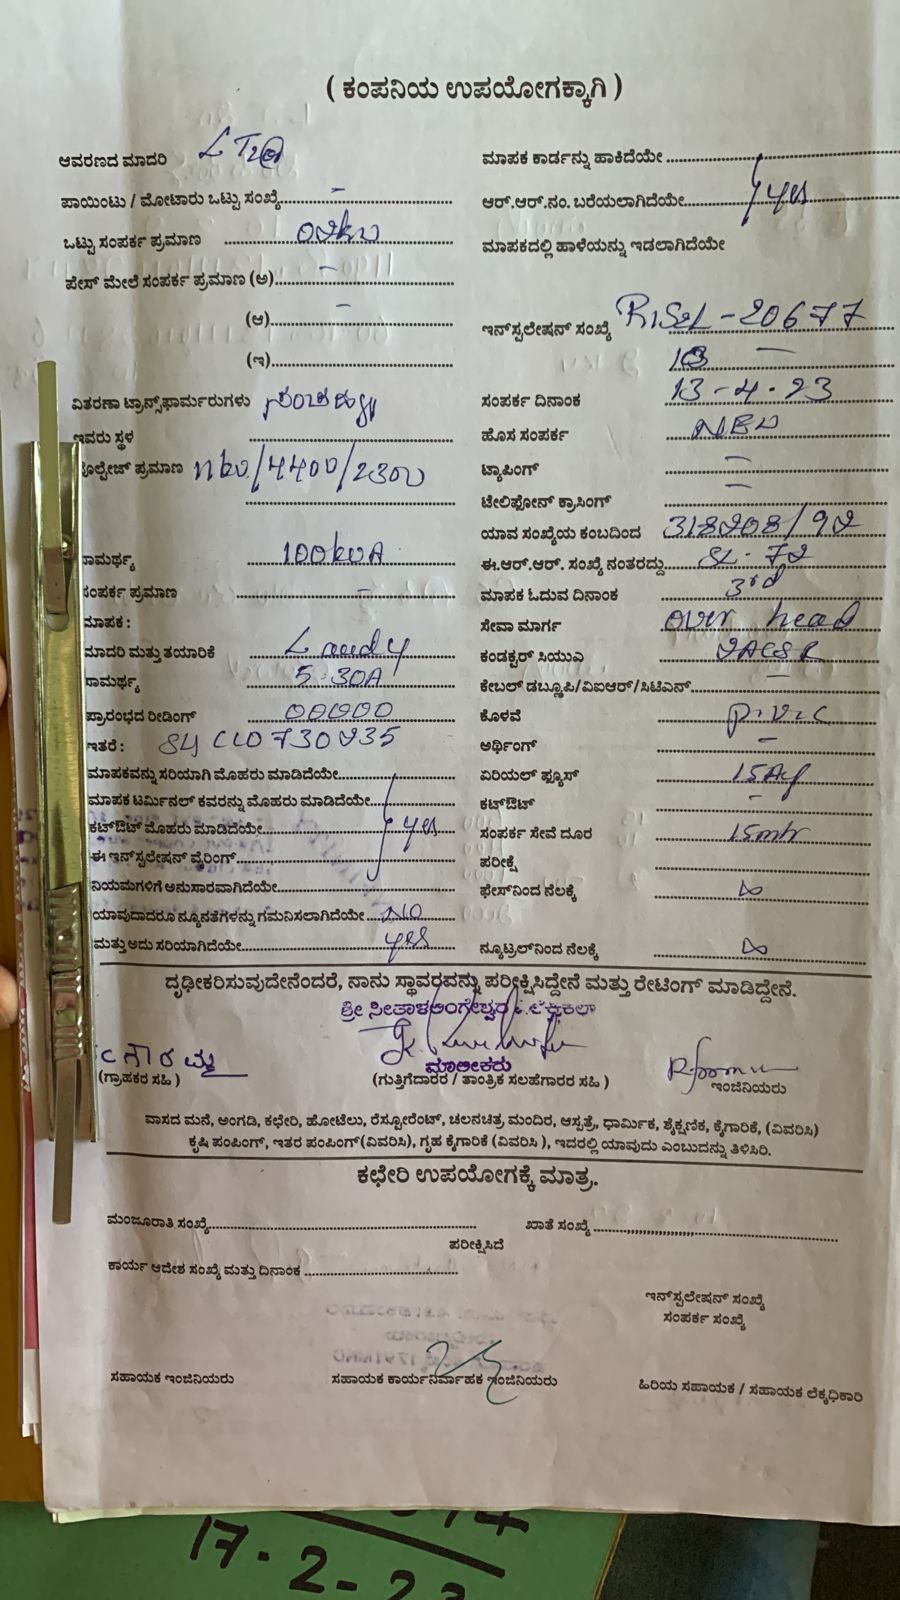 ( ಕಂಪನಿಯ ಉಪಯೋಗಕ್ಕಾಗಿ )
ಆವರಣದ ಮಾದರಿ LT2@
ಮಾಪಕ ಕಾರ್ಡನ್ನು ಹಾಕಿದೆಯೇ
ಪಾಯಿಂಟು / ಮೋಟಾರು ಒಟ್ಟು ಸಂಖ್ಯೆ -
ಆರ್.ಆರ್.ನಂ. ಬರೆಯಲಾಗಿದೆಯೇ yes
ಒಟ್ಟು ಸಂಪರ್ಕ ಪ್ರಮಾಣ
ಮಾಪಕದಲ್ಲಿ ಹಾಳೆಯನ್ನು ಇಡಲಾಗಿದೆಯೇ
ಪೇಸ್ ಮೇಲೆ ಸಂಪರ್ಕ ಪ್ರಮಾಣ (ಅ) -
(ಆ) -
ಇನ್‌ಸ್ಪಲೇಷನ್ ಸಂಖ್ಯೆ -20677
(ಇ)
ವಿತರಣಾ ಟ್ರಾನ್ಸ್‌ಫಾರ್ಮರುಗಳು
ಸಂಪರ್ಕ ದಿನಾಂಕ 13-4-23
ಇವರು ಸ್ಥಳ
ಹೊಸ ಸಂಪರ್ಕ NEW
ವೋಲ್ಟೇಜ್ ಪ್ರಮಾಣ 11kv/4400/230v
ಟ್ಯಾಪಿಂಗ್ -
ಟೇಲಿಫೋನ್ ಕ್ರಾಸಿಂಗ್ -
ಯಾವ ಸಂಖ್ಯೆಯ ಕಂಬದಿಂದ 318208/92
ಸಾಮರ್ಥ್ಯ 100kVA
ಈ.ಆರ್.ಆರ್. ಸಂಖ್ಯೆ ನಂತರದ್ದು SL-72
ಸಂಪರ್ಕ ಪ್ರಮಾಣ -
ಮಾಪಕ ಓದುವ ದಿನಾಂಕ 3rd
ಮಾಪಕ :
ಸೇವಾ ಮಾರ್ಗ over head
ಮಾದರಿ ಮತ್ತು ತಯಾರಿಕೆ
ಕಂಡಕ್ಟರ್ ಸಿಯುಎ
ಸಾಮರ್ಥ್ಯ 5-30A
ಕೇಬಲ್ ಡಬ್ಲೂಪಿ/ವಿಐಆರ್/ಸಿಟಿಎನ್ -
ಪ್ರಾರಂಭದ ರೀಡಿಂಗ್ 00000
ಕೊಳವೆ P.V.C
ಇತರೆ :
ಅರ್ಥಿಂಗ್ -
ಮಾಪಕವನ್ನು ಸರಿಯಾಗಿ ಮೊಹರು ಮಾಡಿದೆಯೇ
ಏರಿಯಲ್ ಫ್ಯೂಸ್
ಮಾಪಕ ಟರ್ಮಿನಲ್ ಕವರನ್ನು ಮೊಹರು ಮಾಡಿದೆಯೇ
ಕಟ್‌ಔಟ್ -
ಕಟ್‌ಔಟ್ ಮೊಹರು ಮಾಡಿದೆಯೇ yes
ಸಂಪರ್ಕ ಸೇವೆ ದೂರ 15mtr
ಈ ಇನ್‌ಸ್ಪಲೇಷನ್ ವೈರಿಂಗ್
ಪರೀಕ್ಷೆ
ನಿಯಮಗಳಿಗೆ ಅನುಸಾರವಾಗಿದೆಯೇ
ಫೇಸ್‌ನಿಂದ ನೆಲಕ್ಕೆ ∞
ಯಾವುದಾದರೂ ನ್ಯೂನತೆಗಳನ್ನು ಗಮನಿಸಲಾಗಿದೆಯೇ NO
ಮತ್ತು ಅದು ಸರಿಯಾಗಿದೆಯೇ yes
ನ್ಯೂಟ್ರಲ್‌ನಿಂದ ನೆಲಕ್ಕೆ ∞
ದೃಢೀಕರಿಸುವುದೇನೆಂದರೆ, ನಾನು ಸ್ಥಾವರವನ್ನು ಪರೀಕ್ಷಿಸಿದ್ದೇನೆ ಮತ್ತು ರೇಟಿಂಗ್ ಮಾಡಿದ್ದೇನೆ.
ಶ್ರೀ
ಮಾಲೀಕರು
(ಗ್ರಾಹಕರ ಸಹಿ )
(ಗುತ್ತಿಗೆದಾರರ / ತಾಂತ್ರಿಕ ಸಲಹೆಗಾರರ ಸಹಿ )
ಇಂಜಿನಿಯರು
ವಾಸದ ಮನೆ, ಅಂಗಡಿ, ಕಛೇರಿ, ಹೋಟೆಲು, ರೆಸ್ಟೋರೆಂಟ್, ಚಲನಚಿತ್ರ ಮಂದಿರ, ಆಸ್ಪತ್ರೆ, ಧಾರ್ಮಿಕ, ಶೈಕ್ಷಣಿಕ, ಕೈಗಾರಿಕೆ, (ವಿವರಿಸಿ)
ಕೃಷಿ ಪಂಪಿಂಗ್, ಇತರ ಪಂಪಿಂಗ್(ವಿವರಿಸಿ), ಗೃಹ ಕೈಗಾರಿಕೆ (ವಿವರಿಸಿ ), ಇದರಲ್ಲಿ ಯಾವುದು ಎಂಬುದನ್ನು ತಿಳಿಸಿರಿ.
ಕಛೇರಿ ಉಪಯೋಗಕ್ಕೆ ಮಾತ್ರ.
ಮಂಜೂರಾತಿ ಸಂಖ್ಯೆ
ಖಾತೆ ಸಂಖ್ಯೆ
ಪರೀಕ್ಷಿಸಿದೆ
ಕಾರ್ಯ ಆದೇಶ ಸಂಖ್ಯೆ ಮತ್ತು ದಿನಾಂಕ
ಇನ್‌ಸ್ಪಲೇಷನ್ ಸಂಖ್ಯೆ
ಸಂಪರ್ಕ ಸಂಖ್ಯೆ
ಸಹಾಯಕ ಇಂಜಿನಿಯರು
ಸಹಾಯಕ ಕಾರ್ಯನಿರ್ವಾಹಕ ಇಂಜಿನಿಯರು
ಹಿರಿಯ ಸಹಾಯಕ / ಸಹಾಯಕ ಲೆಕ್ಕಧಿಕಾರಿ
17-2-23